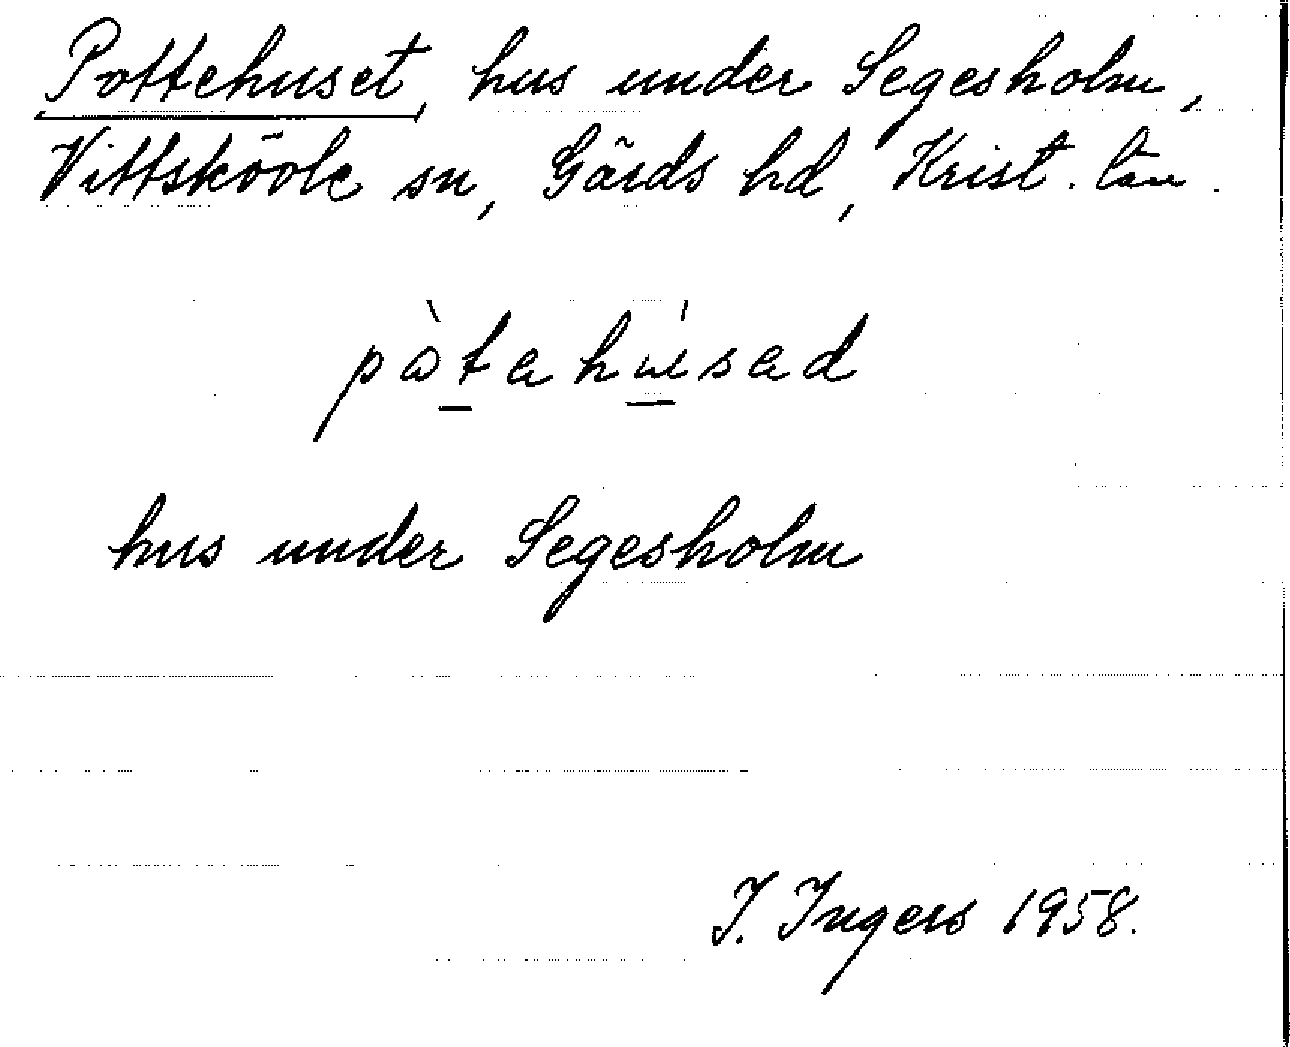 Pottehuset, hus under Segesholm,
Vittskövle sn, Gärds hd, Krist. län.
pàtahúsad
hus under Segesholm
I. Ingers 1958.